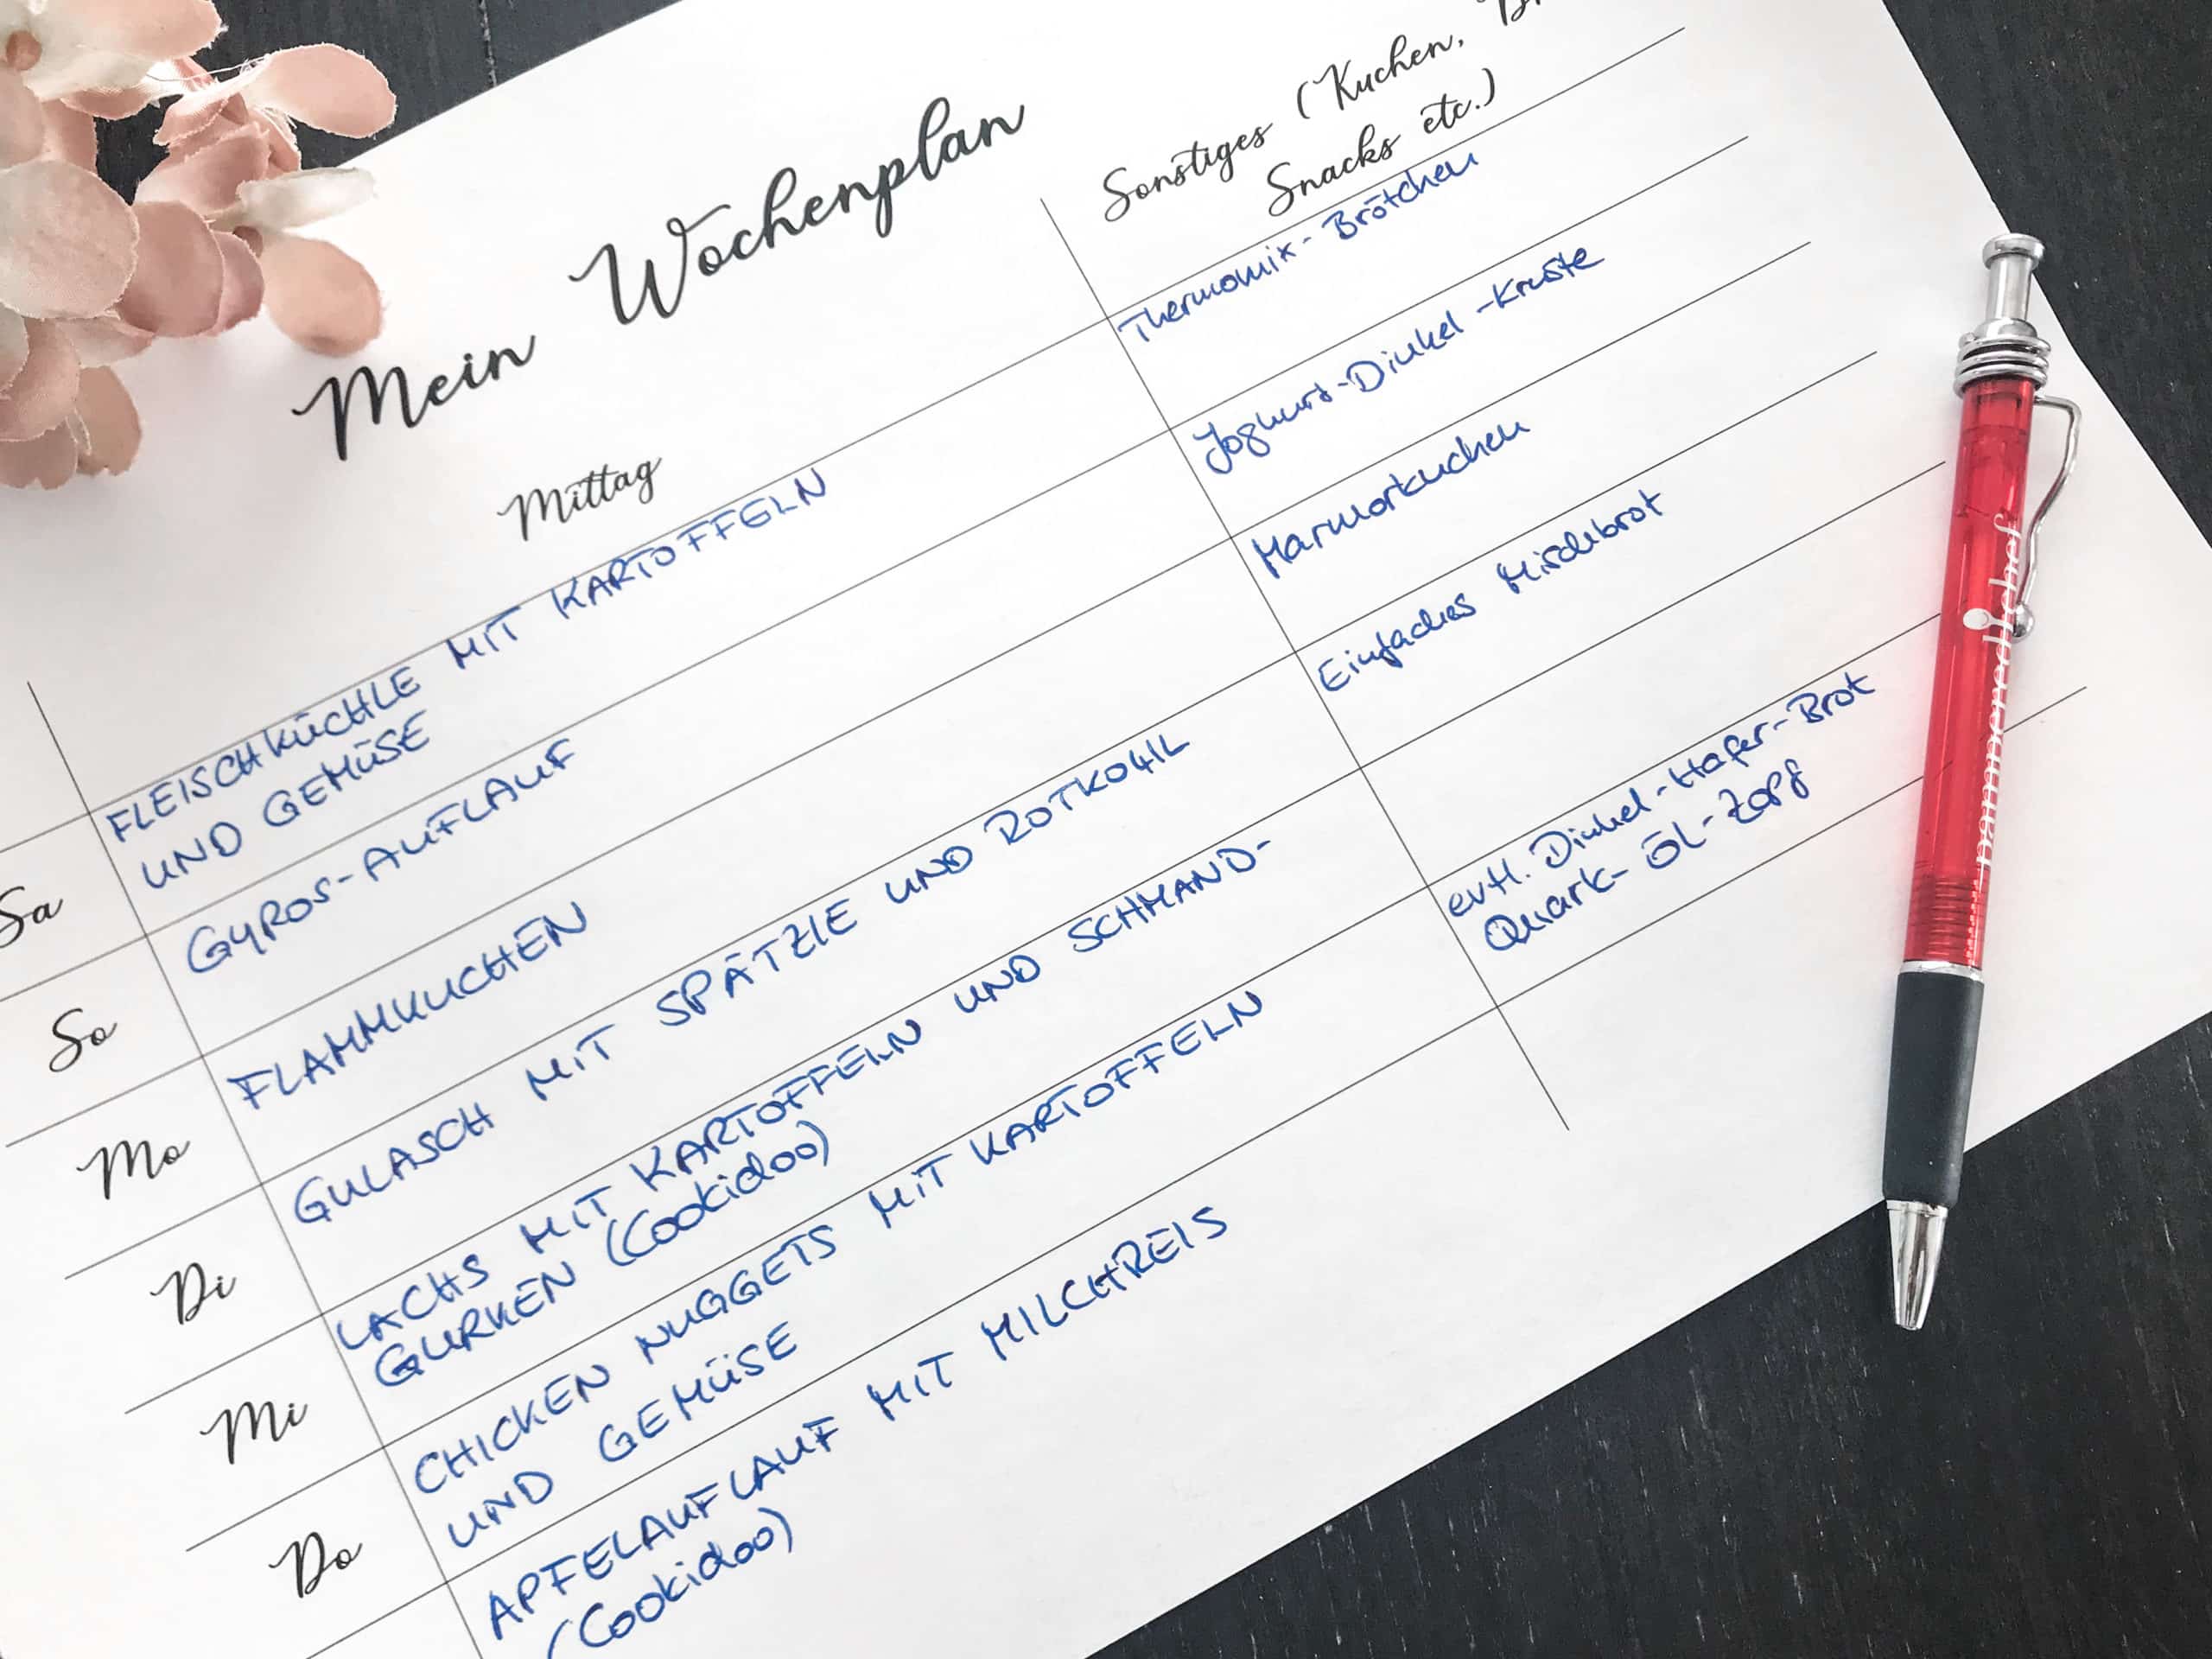 Mein Wochenplan
Mittag
Sonstiges (Kuchen,
Snacks etc.)
Sa
FLEISCHKÜCHLE MIT KARTOFFELN
UND GEMÜSE
Thermomix-Brötchen
So
GYROS-AUFLAUF
Joghurt-Dinkel-Kruste
Mo
FLAMMKUCHEN
Marmorkuchen
Di
GULASCH MIT SPÄTZLE UND ROTKOHL
Einfaches Mischbrot
Mi
LACHS MIT KARTOFFELN UND SCHMAND-
GURKEN (Cookidoo)
Do
CHICKEN NUGGETS MIT KARTOFFELN
UND GEMÜSE
evtl. Dinkel-Hafer-Brot
Quark-Öl-Zopf
APFELAUFLAUF MIT MILCHREIS
(Cookidoo)
pamperedchef